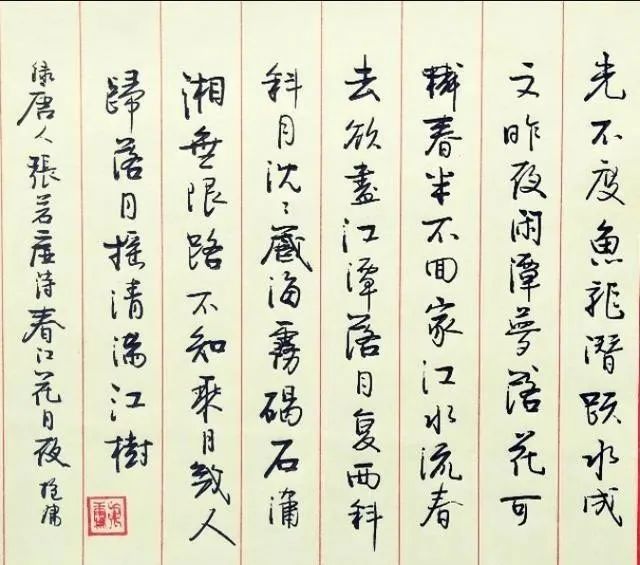 光不度魚龍潛跃水成
文昨夜闲潭夢落花可
憐春半不回家江水流春
去欲盡江潭落月复西斜
斜月沈々藏海霧碣石瀟
湘無限路不知乘月幾人
歸落月摇清滿江樹
錄唐人張若虛詩春江花月夜